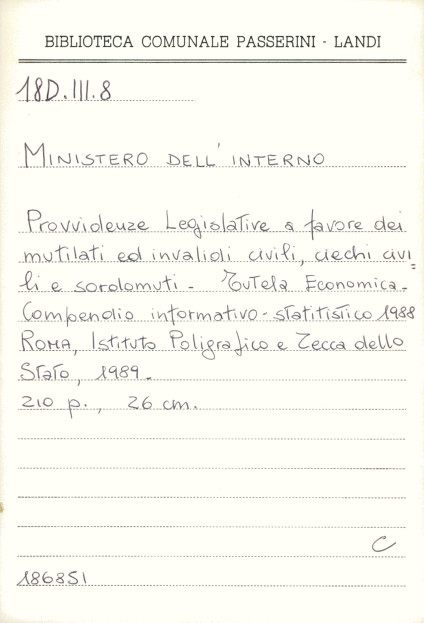 BIBLIOTECA COMUNALE PASSERINI - LANDI
18D.III.8
MINISTERO DELL'INTERNO
Provvidenze Legislative a favore dei
mutilati ed invalidi civili, ciechi civi=
li e sordomuti - Tutela Economica -
Compendio informativo - statitistico 1988
ROMA, Istituto Poligrafico e Zecca dello
Stato, 1989 -
210 p., 26 cm.
C
186851